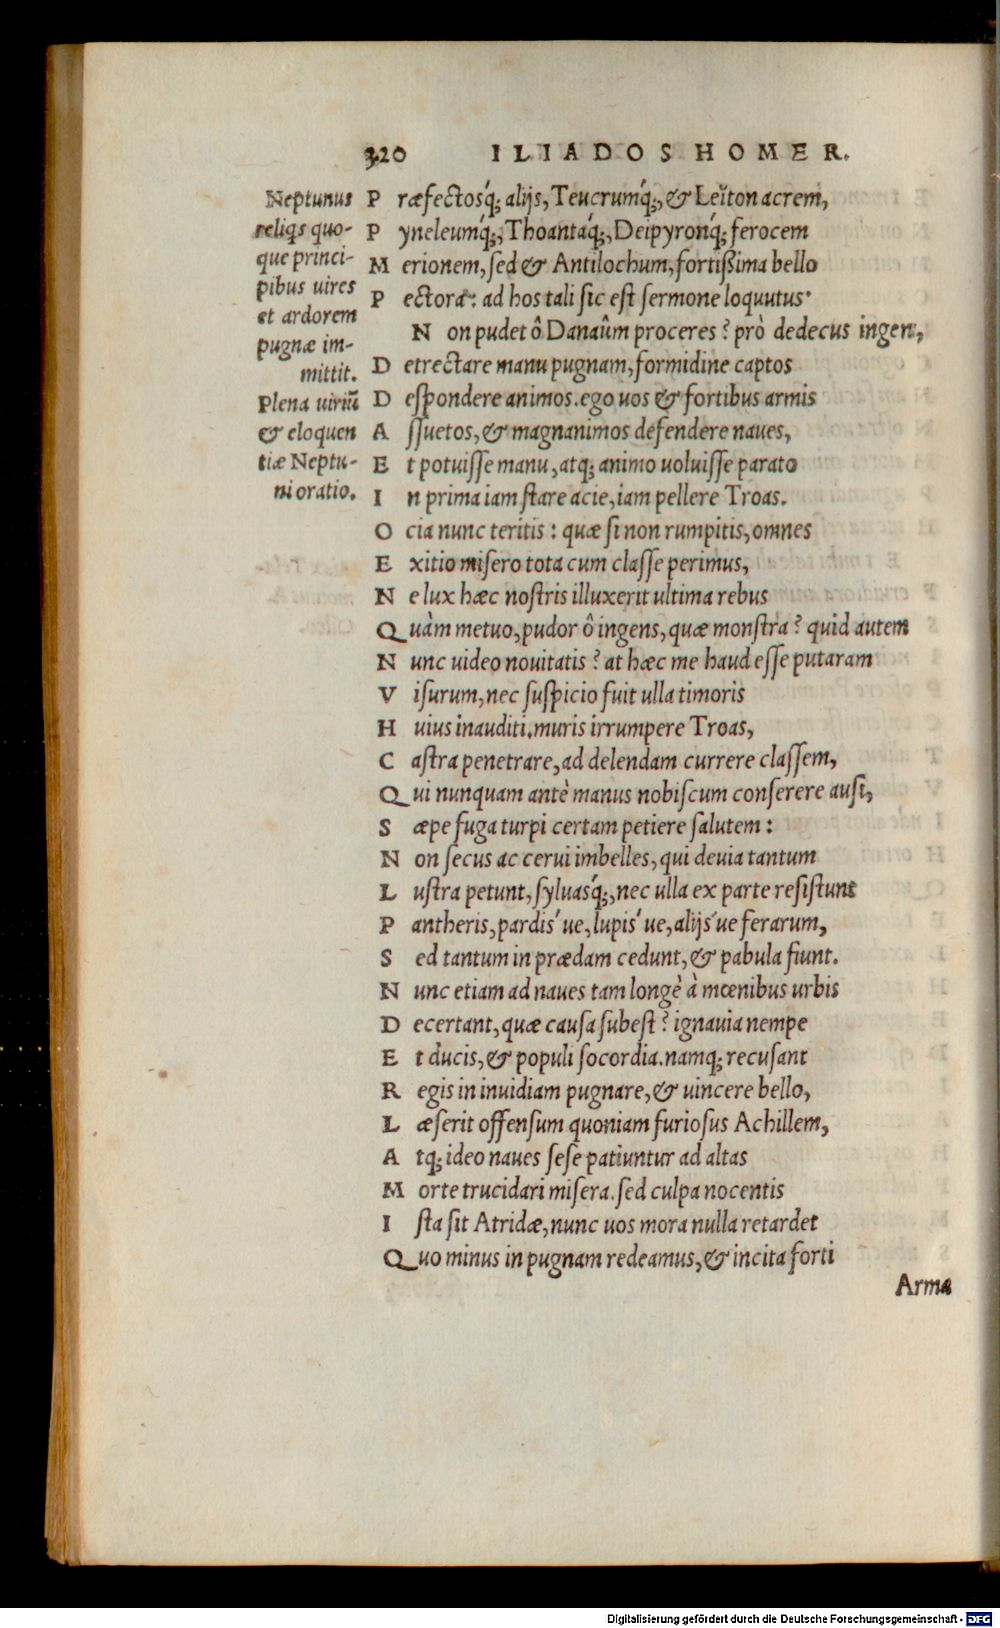 320 ILIADOS HOMER.
Neptunus
reliqs quo-
que princi-
pibus uires
et ardorem
pugnæ im-
mittit.
Plena uiriũ
& eloquen
tiæ Neptu-
ni oratio.
Præfectosq́;, alijs, Teucrumq́;, & Leïton acrem,
Pyneleumq́;, Thoantaq́;, Deipyronq́; ferocem
Merionem, sed & Antilochum, fortißima bello
Pectora: ad hos tali sic est sermone loquutus.
Non pudet ô Danaûm proceres? prò dedecus ingens,
Detrectare manu pugnam, formidine captos
Despondere animos. ego uos & fortibus armis
Assuetos, & magnanimos defendere naues,
Et potuisse manu, atq; animo uoluisse parato
In prima iam stare acie, iam pellere Troas.
Ocia nunc teritis: quæ si non rumpitis, omnes
Exitio misero tota cum classe perimus,
Ne lux hæc nostris illuxerit ultima rebus
Quàm metuo, pudor ô ingens, quæ monstra? quid autem
Nunc uideo nouitatis? at hæc me haud esse putaram
Visurum, nec suspicio fuit ulla timoris
Huius inauditi. muris irrumpere Troas,
Castra penetrare, ad delendam currere classem,
Qui nunquam antè manus nobiscum conserere ausi,
Sæpe fuga turpi certam petiere salutem:
Non secus ac cerui imbelles, qui deuia tantum
Lustra petunt, syluasq́;, nec ulla ex parte resistunt
Pantheris, pardis'ue, lupis'ue, alijs'ue ferarum,
Sed tantum in prædam cedunt, & pabula fiunt.
Nunc etiam ad naues tam longè à mœnibus urbis
Decertant, quæ causa subest? ignauia nempe
Et ducis, & populi socordia. namq; recusant
Regis in inuidiam pugnare, & uincere bello,
Læserit offensum quoniam furiosus Achillem,
Atq; ideo naues sese patiuntur ad altas
Morte trucidari misera. sed culpa nocentis
Ista sit Atridæ, nunc uos mora nulla retardet
Quo minus in pugnam redeamus, & incita forti
Arma
Digitalisierung gefördert durch die Deutsche Forschungsgemeinschaft - DFG